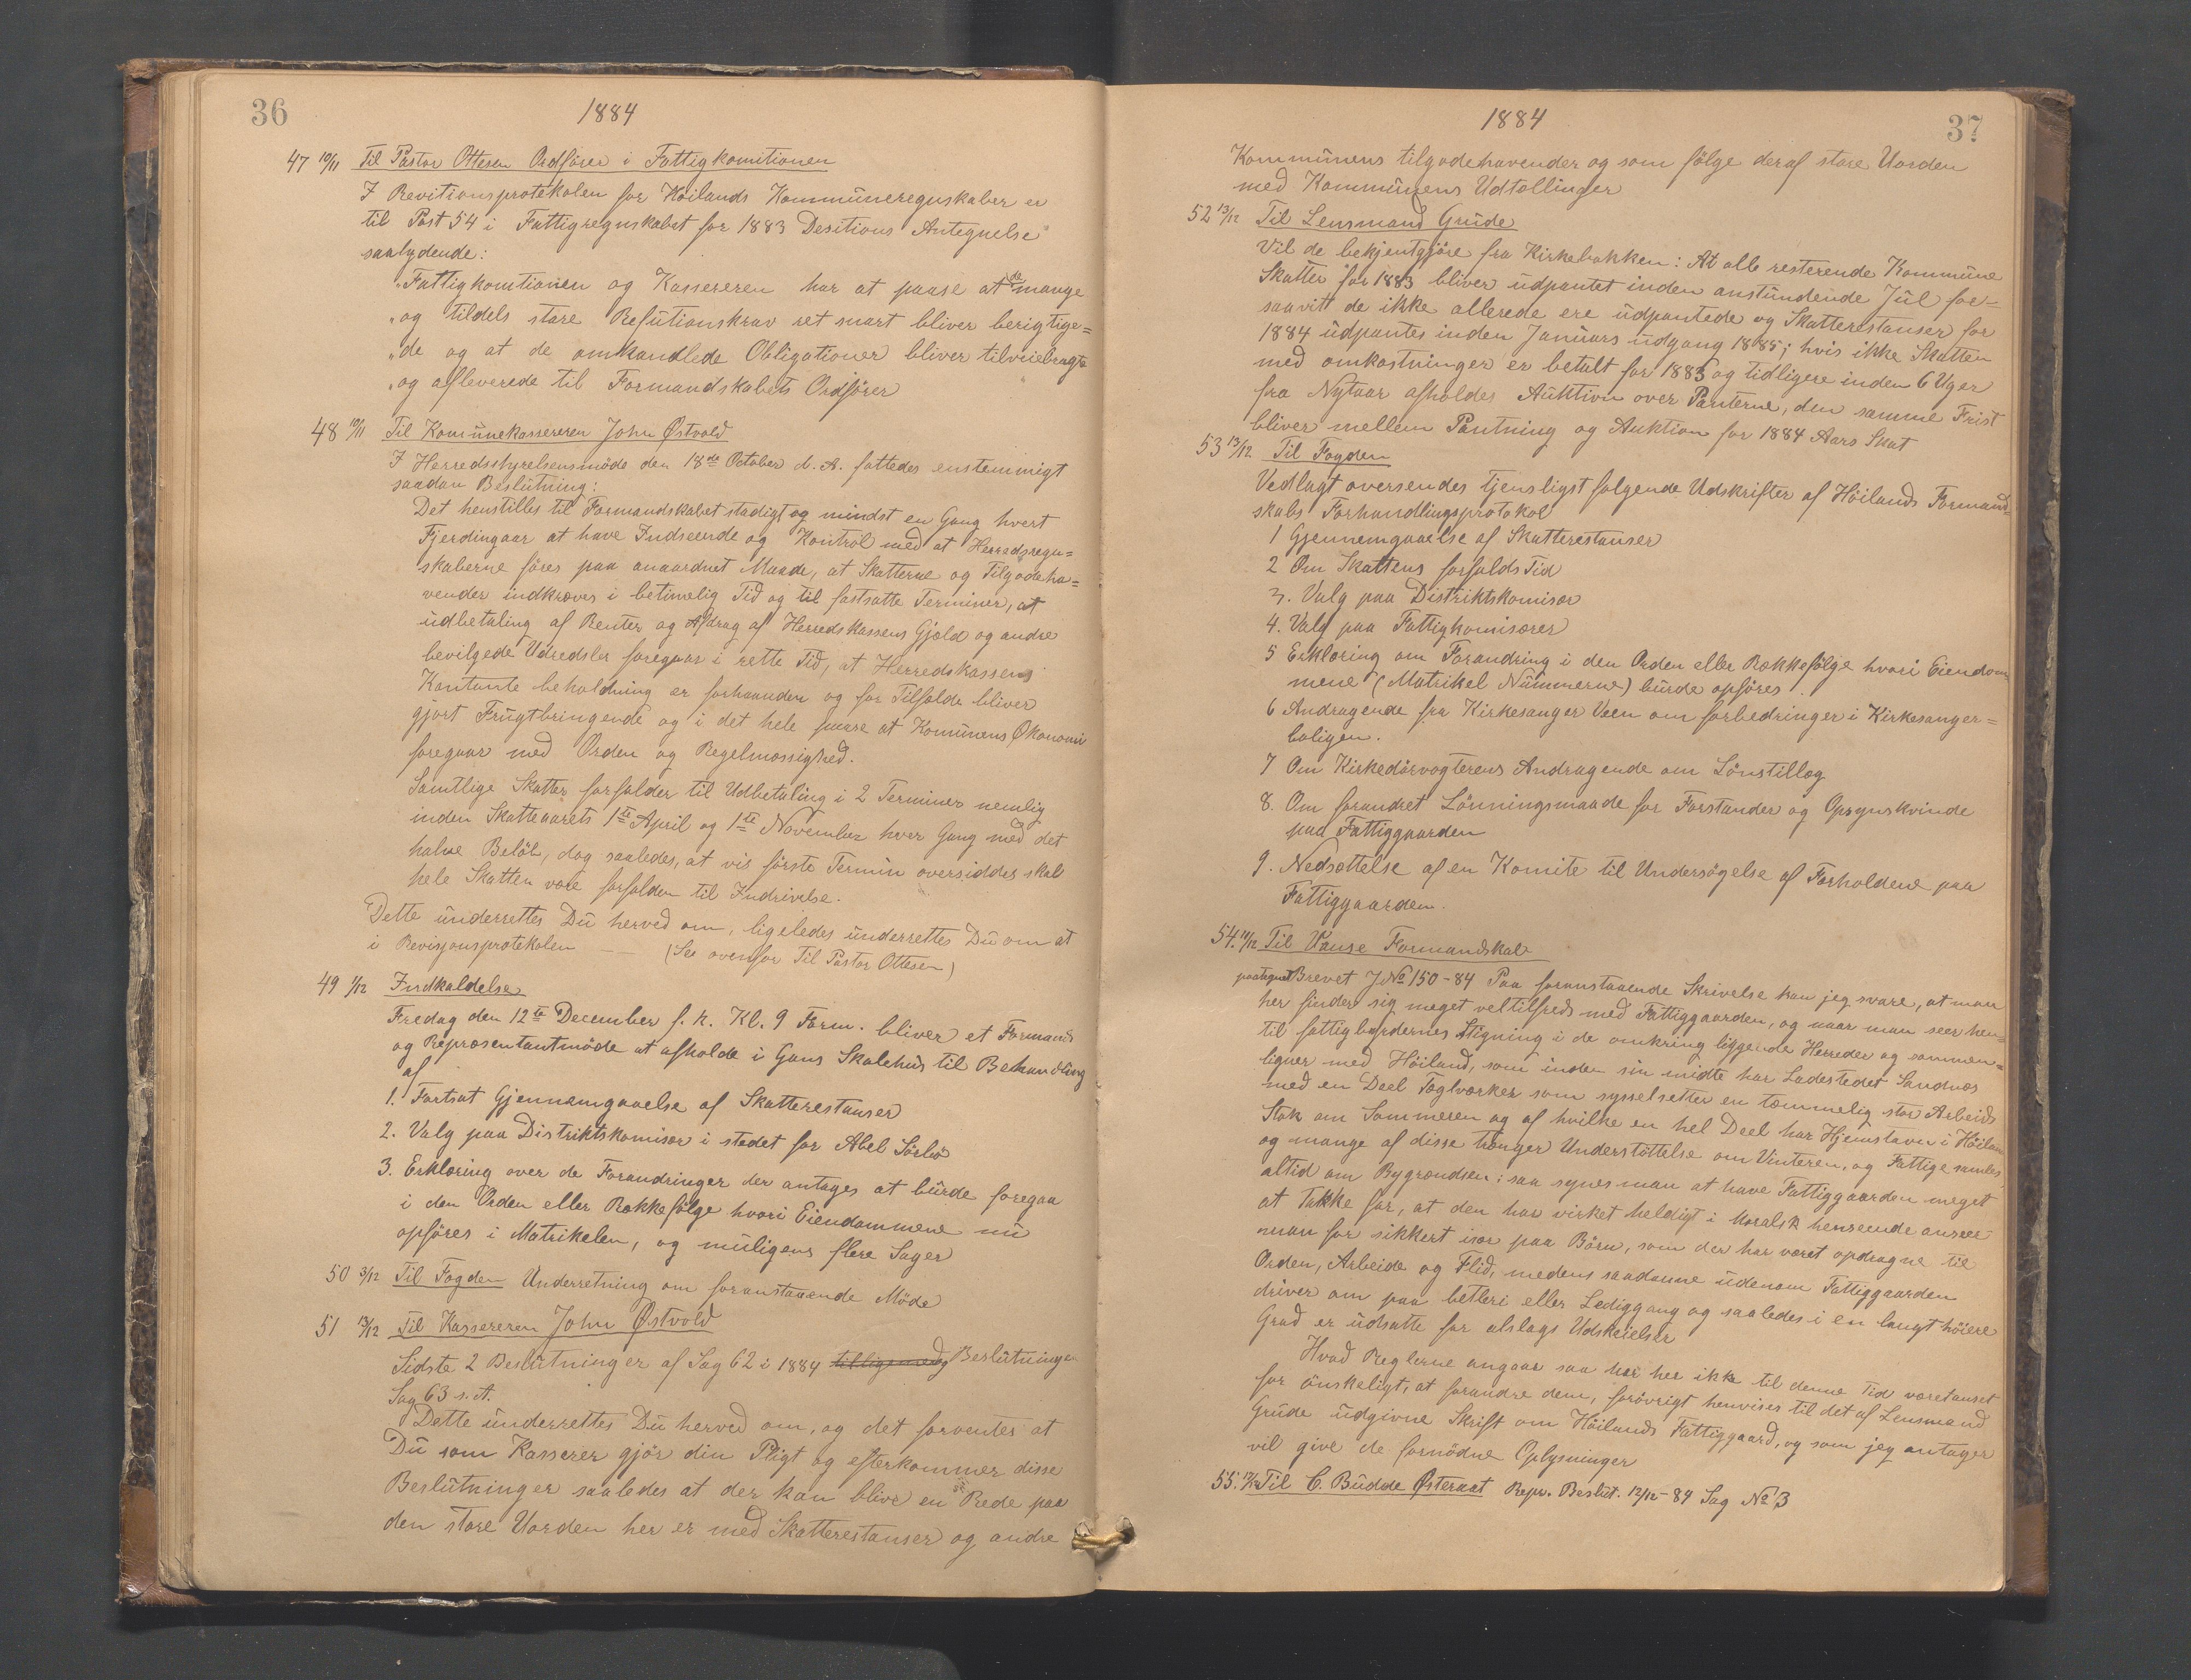 36
1884
47 10/11 Til Pastor Ottesen Ordfører i Fattigkomitionen
I Revitionsprotokolen for Høilands Kommuneregnskaber er
til Post 54 i Fattigregnskabet for 1883 Desitions Antegnelse
saalydende:
"Fattigkomtionen og Kassereren har at paase at de mange
"og tildels store Refutionskrav ret snart bliver berigtige=
"de og at de omhandlede Obligationer bliver tilveiebragte
"og afleverede til Formandskabets Ordfører
48 10/11 Til Komunekassereren John Østvold
I Herredsstyrelsensmøde den 18de October d. A. fattedes enstemmigt
saadan Beslutning:
Det henstilles til Formandskabet stadigt og mindst en Gang hvert
Fjerdingaar at have Indseende og Kontrol med at Herredsregn=
skaberne føres paa anaordnet Maade, at Skatterne og Tilgodeha=
vender indkræves i betimelig Tid og til fastsatte Terminer, at
udbetaling af Renter og Afdrag af Herredskassens Gjæld og andre
bevilgede Udredsler foregaar i rette Tid, at Herredskassens
Kontante beholdning er forhaanden og for Tilfælde bliver
gjort Frugtbringende og i det hele paase at Komunens Økonomi
foregaar med Orden og Regelmæssighed.
Samtlige Skatter forfalder til Udbetaling i 2 Terminer nemlig
inden Skatteaarets 1ste April og 1ste November hver Gang med det
halve Beløb, dog saaledes, at vis første Termin oversiddes skal
hele Skatten være forfalden til Inddrivelse.
Dette underrettes Du herved om, ligeledes underrettes Du om at
i Revisjonsprotokolen — (See ovenfor Til Pastor Ottesen)
49 1/12 Indkaldelse
Fredag den 12te December f. k. Kl. 9 Form. bliver et Formands
og Repræsentantmøde at afholde i Gans Skolehus til Behandling
af
1. Fortsat Gjennemgaaelse af Skatterestanser
2. Valg paa Distriktskomisær i stedet for Abel Sørbø
3. Erklæring over de Forandringer der antages at burde foregaa
i den Orden eller Rækkefølge hvori Eiendommene nu
opføres i Matrikelen, og muligens flere Sager
50 3/12 Til Fogden Underretning om foranstaaende Møde
51 13/12 Til Kassereren John Østvold
Sidste 2 Beslutninger af Sag 62 i 1884 tilligemed Beslutningen
Sag 63 s. A.
Dette underrettes Du herved om, og det forventes at
Du som Kasserer gjør din Pligt og efterkommer disse
Beslutninger saaledes at der kan blive en Rede paa
den store Uorden her er med Skatterestanser og andre
1884
37
Kommunens tilgodehavender og som følge deraf store Uorden
med Kommunens Udtællinger
52 13/12 Til Lensmand Grude
Vil de bekjentgjøre fra Kirkebakken: At alle resterende Kommune
Skatter for 1883 bliver udpantet inden anstundende Jul for=
saavitt de ikke allerede ere udpantede og Skatterestanser for
1884 udpantes inden Januars udgang 1885; hvis ikke Skatten
med omkostninger er betalt for 1883 og tidligere inden 6 Uger
fra Nytaar afholdes Auktion over Panterne, den samme Frist
bliver mellem Pantning og Auktion for 1884 Aars Skat
53 13/12 Til Fogden
Vedlagt oversendes tjensligst følgende Udskrifter af Høilands Formand=
skabs Forhandlingsprotokol
1 Gjennemgaaelse af Skatterestanser
2 Om Skattens forfalds Tid
3. Valg paa Distriktskomisær
4. Valg paa Fattigkomisærer
5 Erklæring om Forandring i den Orden eller Rækkefølge hvori Eiendom=
mene (Matrikel Nummerne) burde opføres
6 Andragende fra Kirkesanger Veen om forbedringer i Kirkesanger=
boligen.
7 Om Kirkedørvogterens Andragende om Lønstillæg
8. Om forandret Lønningsmaade for Forstander og Opsynskvinde
paa Fattiggaarden
9. Nedsættelse af en Komite til Undersøgelse af Forholdene paa
Fattiggaarden.
54. 14/12 Til Vanse Formandskab
paategnet Brevet J№ 150-84 Paa foranstaaende Skrivelse kan jeg svare, at man
her finder sig meget veltilfreds med Fattiggaarden, og naar man seer hen=
til fattigbyrdernes Stigning i de omkring liggende Herreder og sammen=
ligner med Høiland, som inden sin midte har Ladestedet Sandnæs
med en Deel Teglværker som sysselsetter en temmelig stor Arbeids
Stok om Sommeren og af hvilke en hel Deel har Hjemstavn i Høiland
og mange af disse trænger Understøttelse om Vinteren, og Fattige samles
altid om Bygrændsen: saa synes man at have Fattiggaarden meget
at Takke for, at den har virket heldigt i Moralsk henseende anseer
man for sikkert især paa Børn, som der har været opdragne til
Orden, Arbeide og Flid, medens saadanne udenom Fattiggaarden
driver om paa betleri eller Lediggang og saaledes i en langt høiere
Grad er udsatte for alslags Udskeielser
Hvad Reglerne angaar saa har her ikke til denne Tid været anset
for ønskeligt, at forandre dem, forøvrigt henvises til det af Lensmand
Grude udgivne Skrift om Høilands Fattiggaard, og som jeg antager
vil give de fornødne Oplysninger
55. Til C. Budde Østeraat Repr. Beslut. 12/12-84 Sag № 3